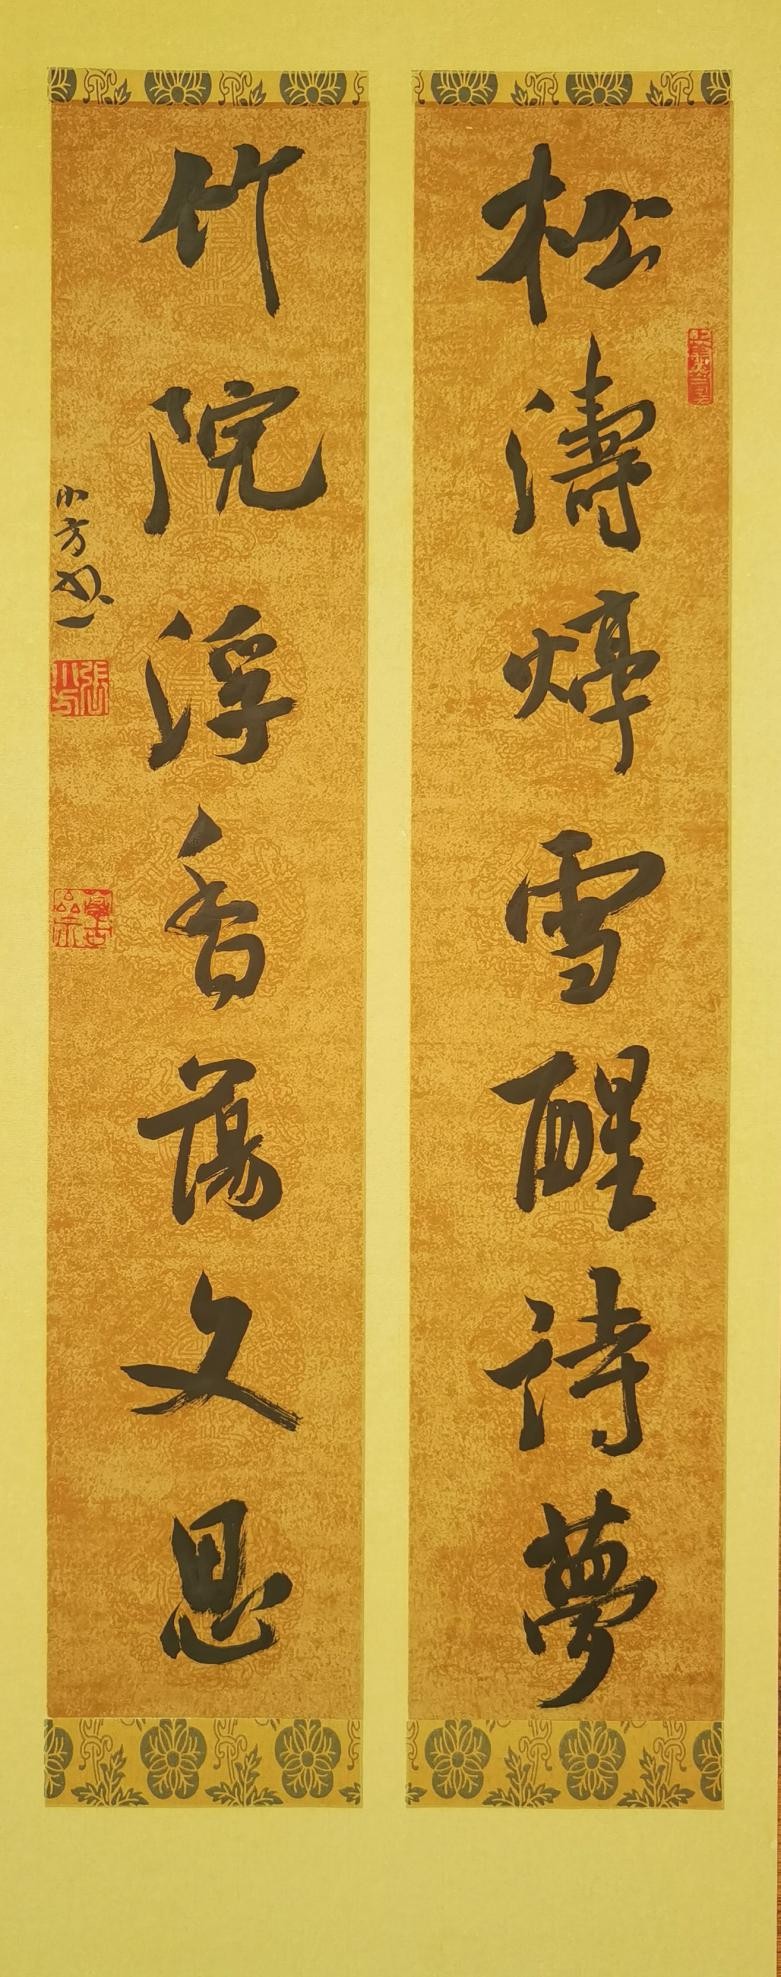 松濤烹雪醒詩夢
竹院浮香蕩文思
小方